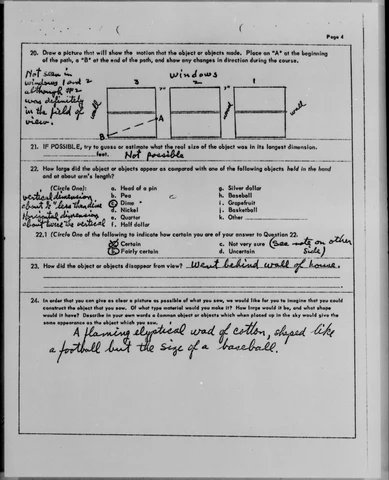 Page 4
20. Draw a picture that will show the motion that the object or objects made. Place an "A" at the beginning
of the path, a "B" at the end of the path, and show any changes in direction during the course.
Not seen in
windows 1 and 2
although #2
was definitely
in the field of
view.
windows
3 2 1
wall
wall
wall
A
B
21. IF POSSIBLE, try to guess or estimate what the real size of the object was in its longest dimension.
feet. Not possible
22. How large did the object or objects appear as compared with one of the following objects held in the hand
and at about arm's length?
(Circle One):
a. Head of a pin
b. Pea
c. Dime
d. Nickel
e. Quarter
f. Half dollar
g. Silver dollar
h. Baseball
i. Grapefruit
j. Basketball
k. Other
vertical dimension
about less than dime
Horizontal dimension
about twice the vertical
22.1 (Circle One of the following to indicate how certain you are of your answer to Question 22.
a. Certain c. Not very sure (see note on other
b. Fairly certain d. Uncertain side)
23. How did the object or objects disappear from view? Went behind wall of house.
24. In order that you can give as clear a picture as possible of what you saw, we would like for you to imagine that you could
construct the object that you saw. Of what type material would you make it? How large would it be, and what shape
would it have? Describe in your own words a common object or objects which when placed up in the sky would give the
same appearance as the object which you saw.
A flaming elyptical wad of cotton, shaped like
a football but the size of a baseball.